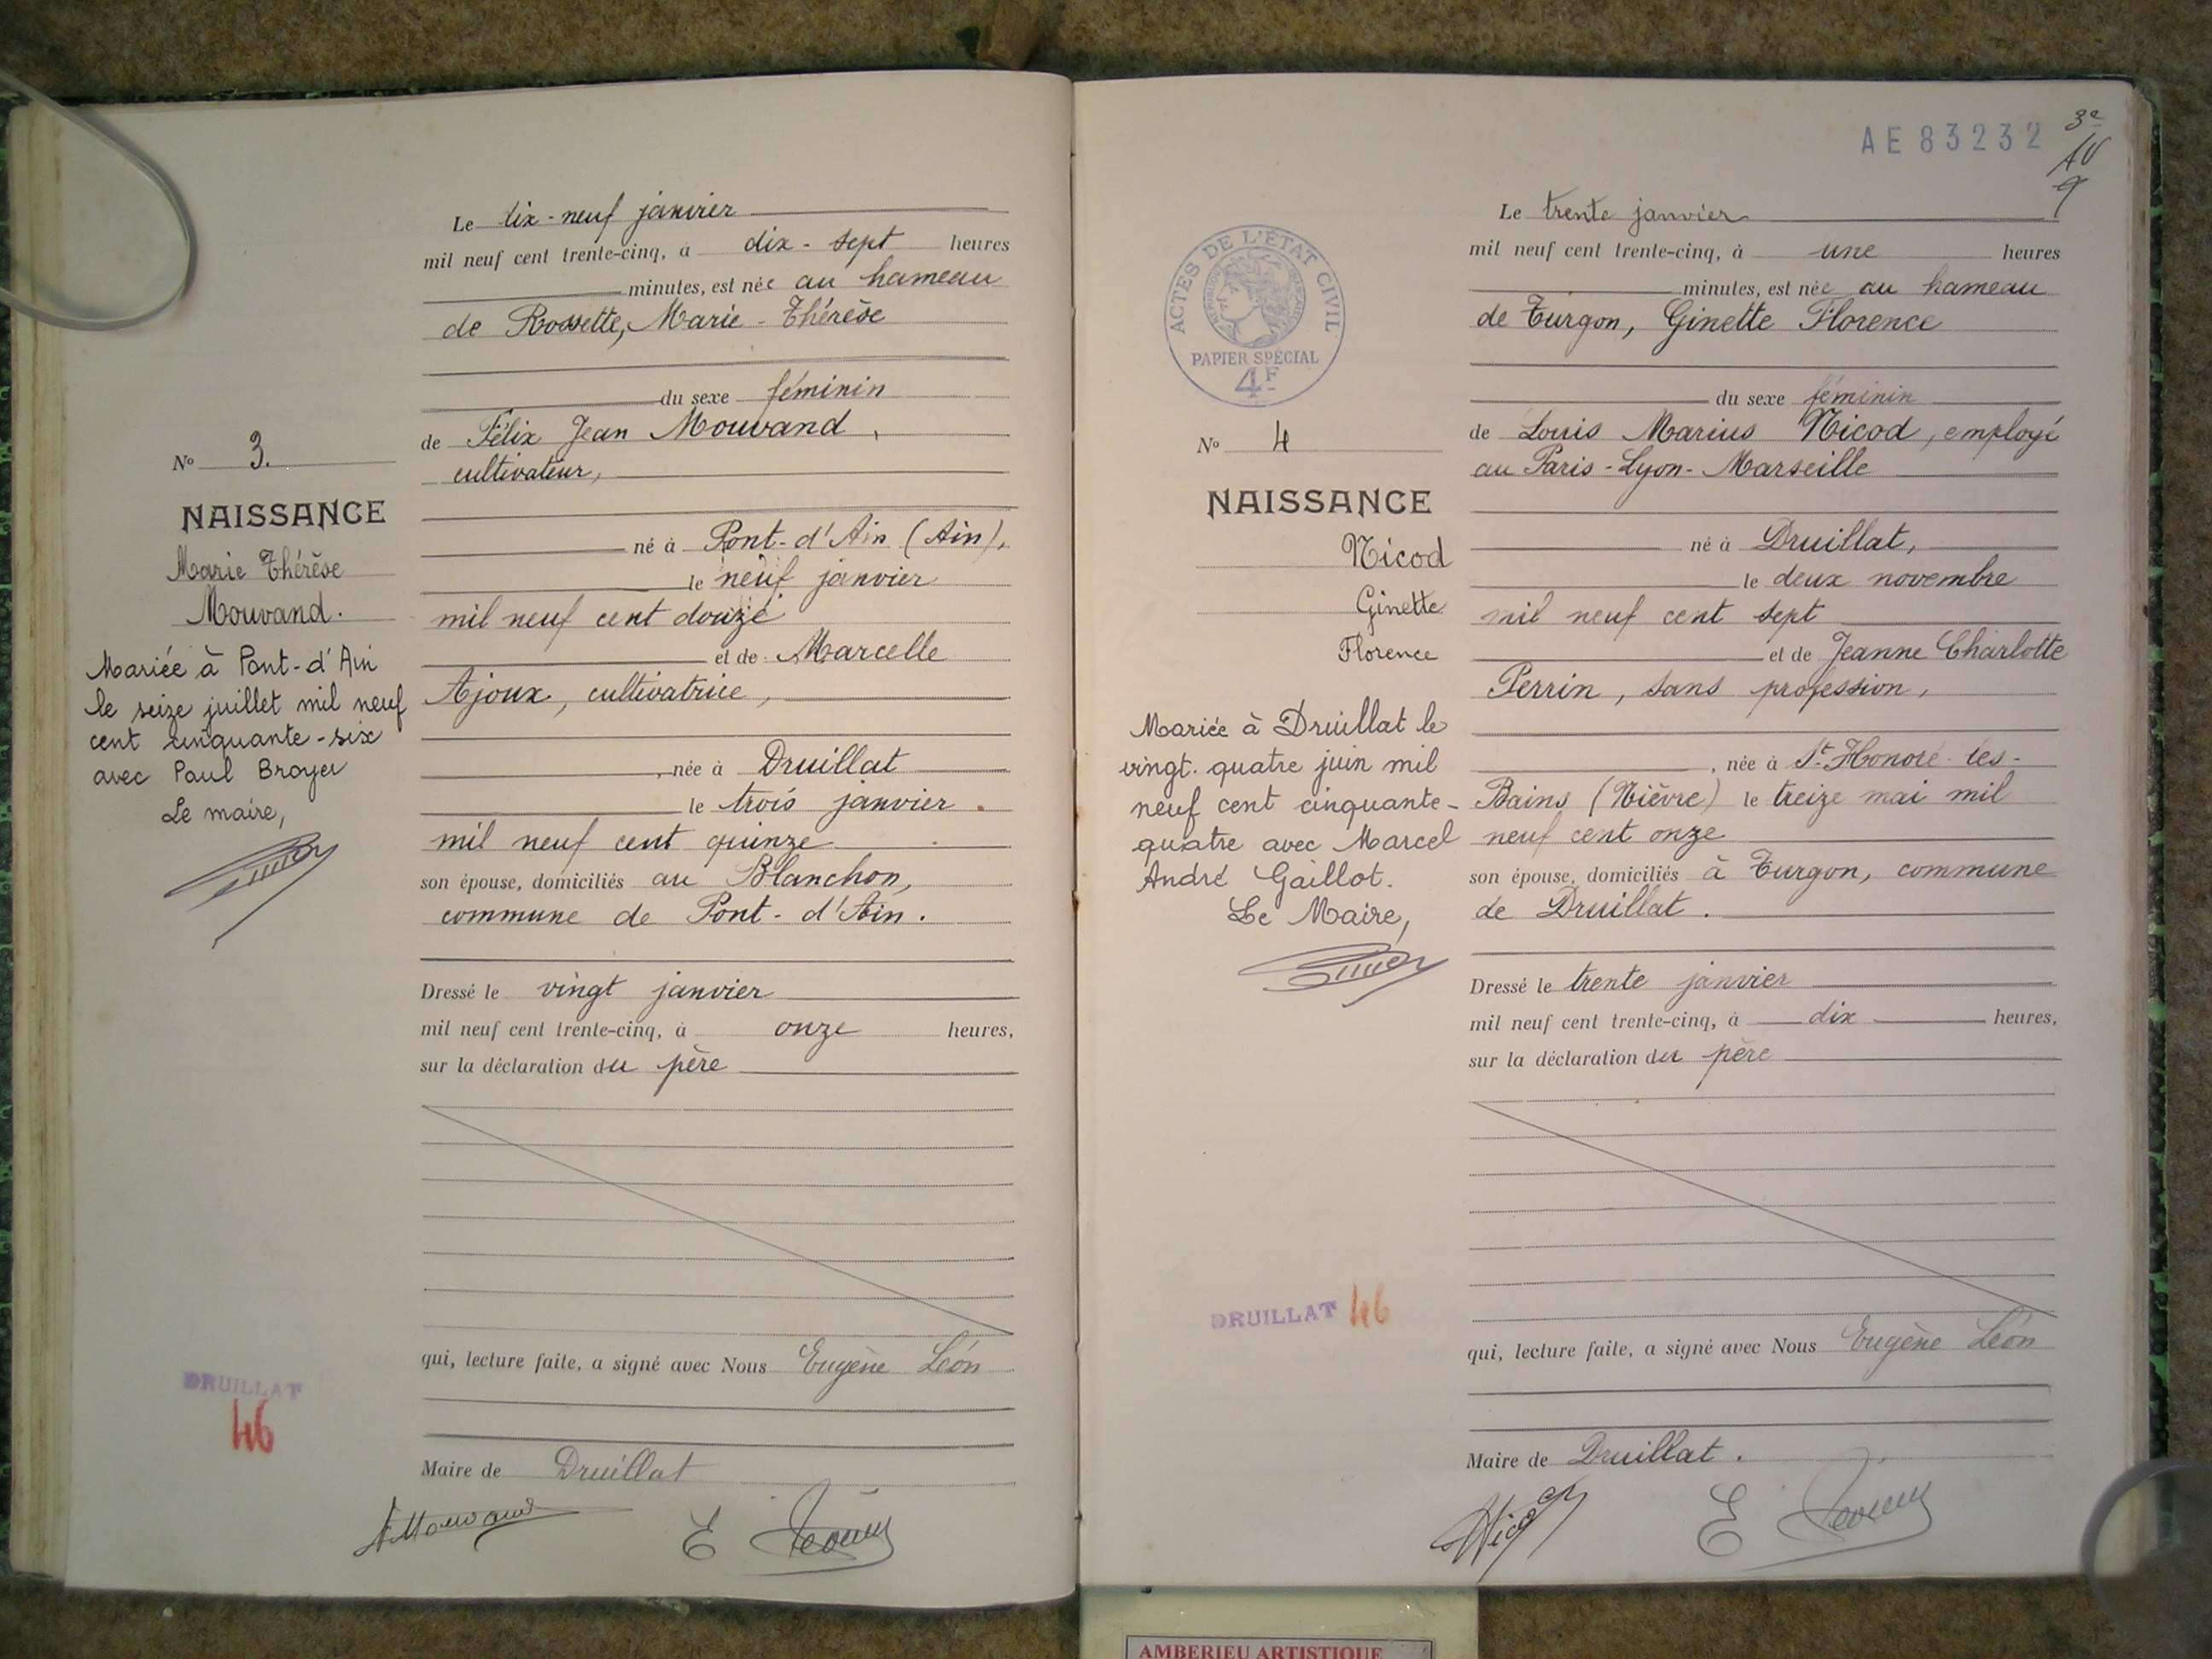 Le dix-neuf janvier
mil neuf cent trente-cinq, à dix-sept heures
minutes, est née au hameau
de Rossette, Marie-Thérèse
du sexe féminin
de Félix Jean Mouvand,
cultivateur,
né à Pont-d'Ain (Ain),
le neuf janvier
mil neuf cent douze
et de Marcelle
Ajoux, cultivatrice,
, née à Druillat
le trois janvier
mil neuf cent quinze
son épouse, domiciliés au Blanchon,
commune de Pont-d'Ain.
Dressé le vingt janvier
mil neuf cent trente-cinq, à onze heures,
sur la déclaration du père
qui, lecture faite, a signé avec Nous Eugène Léon
Maire de Druillat
No 3.
NAISSANCE
Marie Thérèse
Mouvand.
Mariée à Pont-d'Ain
le seize juillet mil neuf
cent cinquante-six
avec Paul Broyer
Le maire,
DRUILLAT
46
AE 83232
3e
ACTES DE L'ÉTAT CIVIL
PAPIER SPÉCIAL
4F
No 4
NAISSANCE
Nicod
Ginette
Florence
Mariée à Druillat le
vingt-quatre juin mil
neuf cent cinquante-
quatre avec Marcel
André Gaillot.
Le Maire,
DRUILLAT 46
Le trente janvier
mil neuf cent trente-cinq, à une heures
minutes, est née au hameau
de Turgon, Ginette Florence
du sexe féminin
de Louis Marius Nicod, employé
au Paris-Lyon-Marseille
né à Druillat,
le deux novembre
mil neuf cent sept
et de Jeanne Charlotte
Perrin, sans profession,
, née à St-Honoré-les-
Bains (Nièvre) le treize mai mil
neuf cent onze
son épouse, domiciliés à Turgon, commune
de Druillat.
Dressé le trente janvier
mil neuf cent trente-cinq, à dix heures,
sur la déclaration du père
qui, lecture faite, a signé avec Nous Eugène Léon
Maire de Druillat.
AMBERIEU ARTISTIQUE